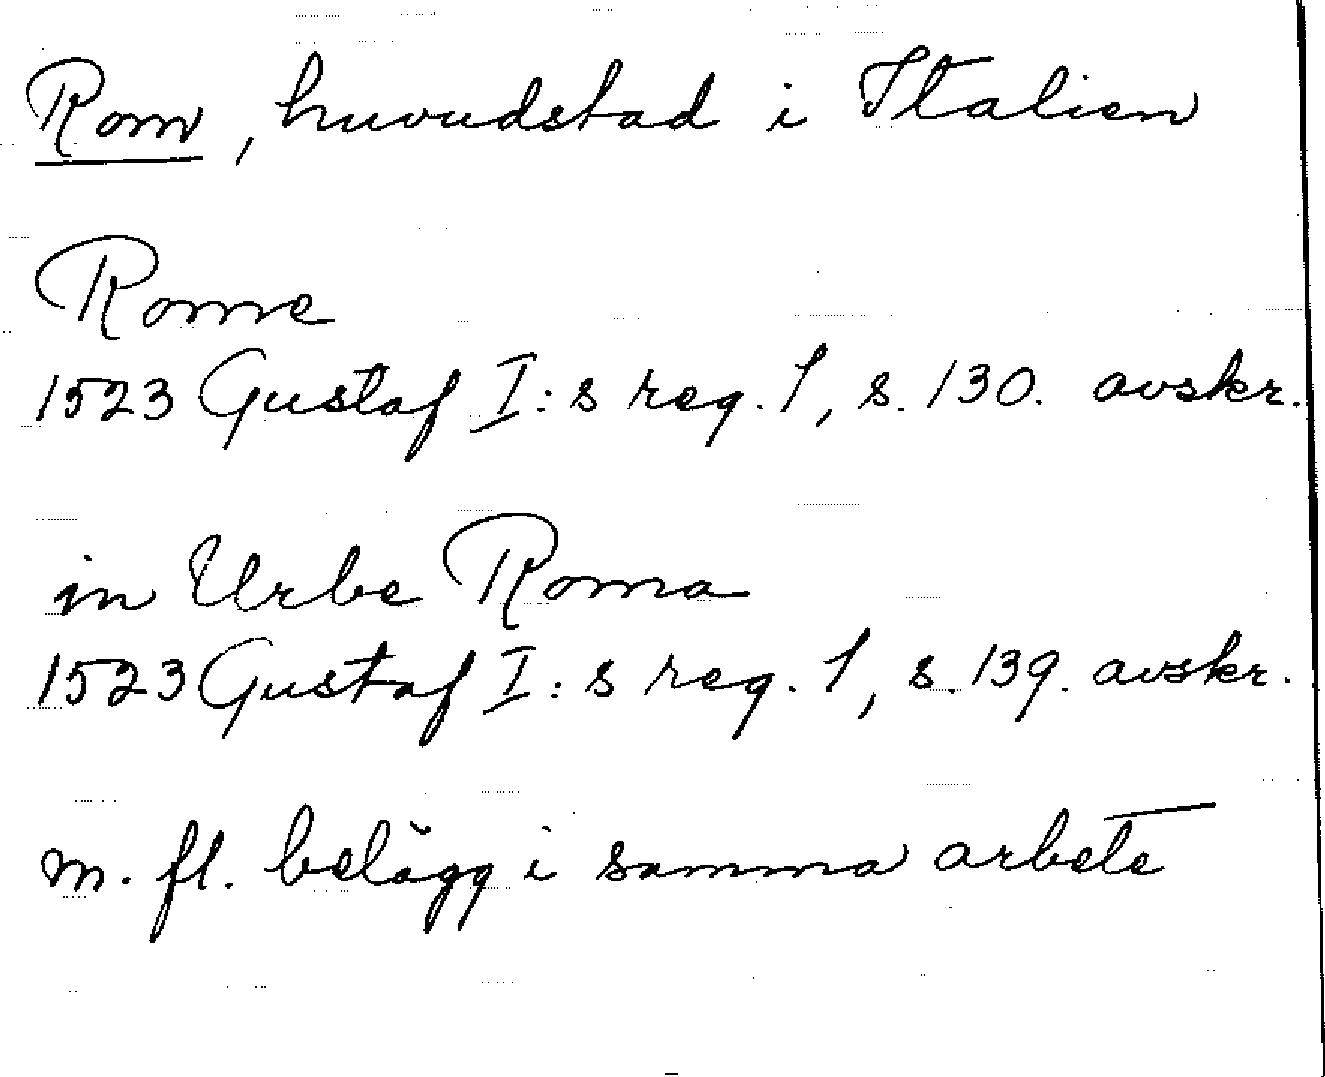 Rom, huvudstad i Italien
Rome
1523 Gustaf I:s reg. 1, s. 130. avskr.
in Urbe Roma
1523 Gustaf I:s reg. 1, s. 139. avskr.
m. fl. belägg i samma arbete